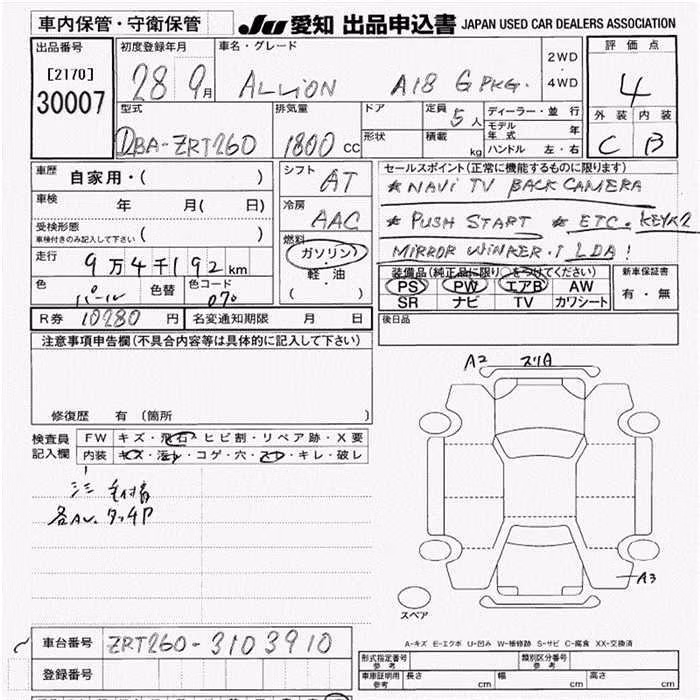 車内保管・守衛保管
JU 愛知 出品申込書 JAPAN USED CAR DEALERS ASSOCIATION
出品番号
[2170]
30007
初度登録年月
28 9月
車名・グレード
ALLiON A18 G PKG.
2WD
・
4WD
評価点
4
外装 内装
C B
型式
DBA-ZRT260
排気量
1800 CC
ドア
形状
定員 5人
積載 kg
ディーラー・並行
モデル年式 年
ハンドル 左・右
車歴 自家用・( )
車検 年 月( 日)
受検形態
車検付きのみ記入して下さい ( )
走行 9万4千192km
色 パール 色替 色コード 070
シフト AT
冷房 AAC
燃料
ガソリン
・
軽・油
( )
セールスポイント(正常に機能するものに限ります)
* NAVi TV BACK CAMERA
* PUSH START * ETC. KEYX2
MIRROR WINKER. 1 LDA!
装備品(純正品に限り○をつけてください)
PS PW エアB AW
SR ナビ TV カワシート
新車保証書
有・無
R券 10280 円 名変通知期限 月 日
後日品
注意事項申告欄(不具合内容等は具体的に記入して下さい)
修復歴 有(箇所 )
検査員記入欄
FW キズ・飛石・ヒビ割・リペア跡・X要
内装 キズ・汚れ・コゲ・穴・スレ・キレ・破レ
A2 スリ
A3
スペア
A-キズ E-エクボ U-凹み W-補修跡 S-サビ C-腐食 XX-交換済
車台番号 ZRT260-3103910
登録番号
形式指定番号 参考
類別区分番号 参考
車庫証明用 参考 長さ cm 幅 cm 高さ cm